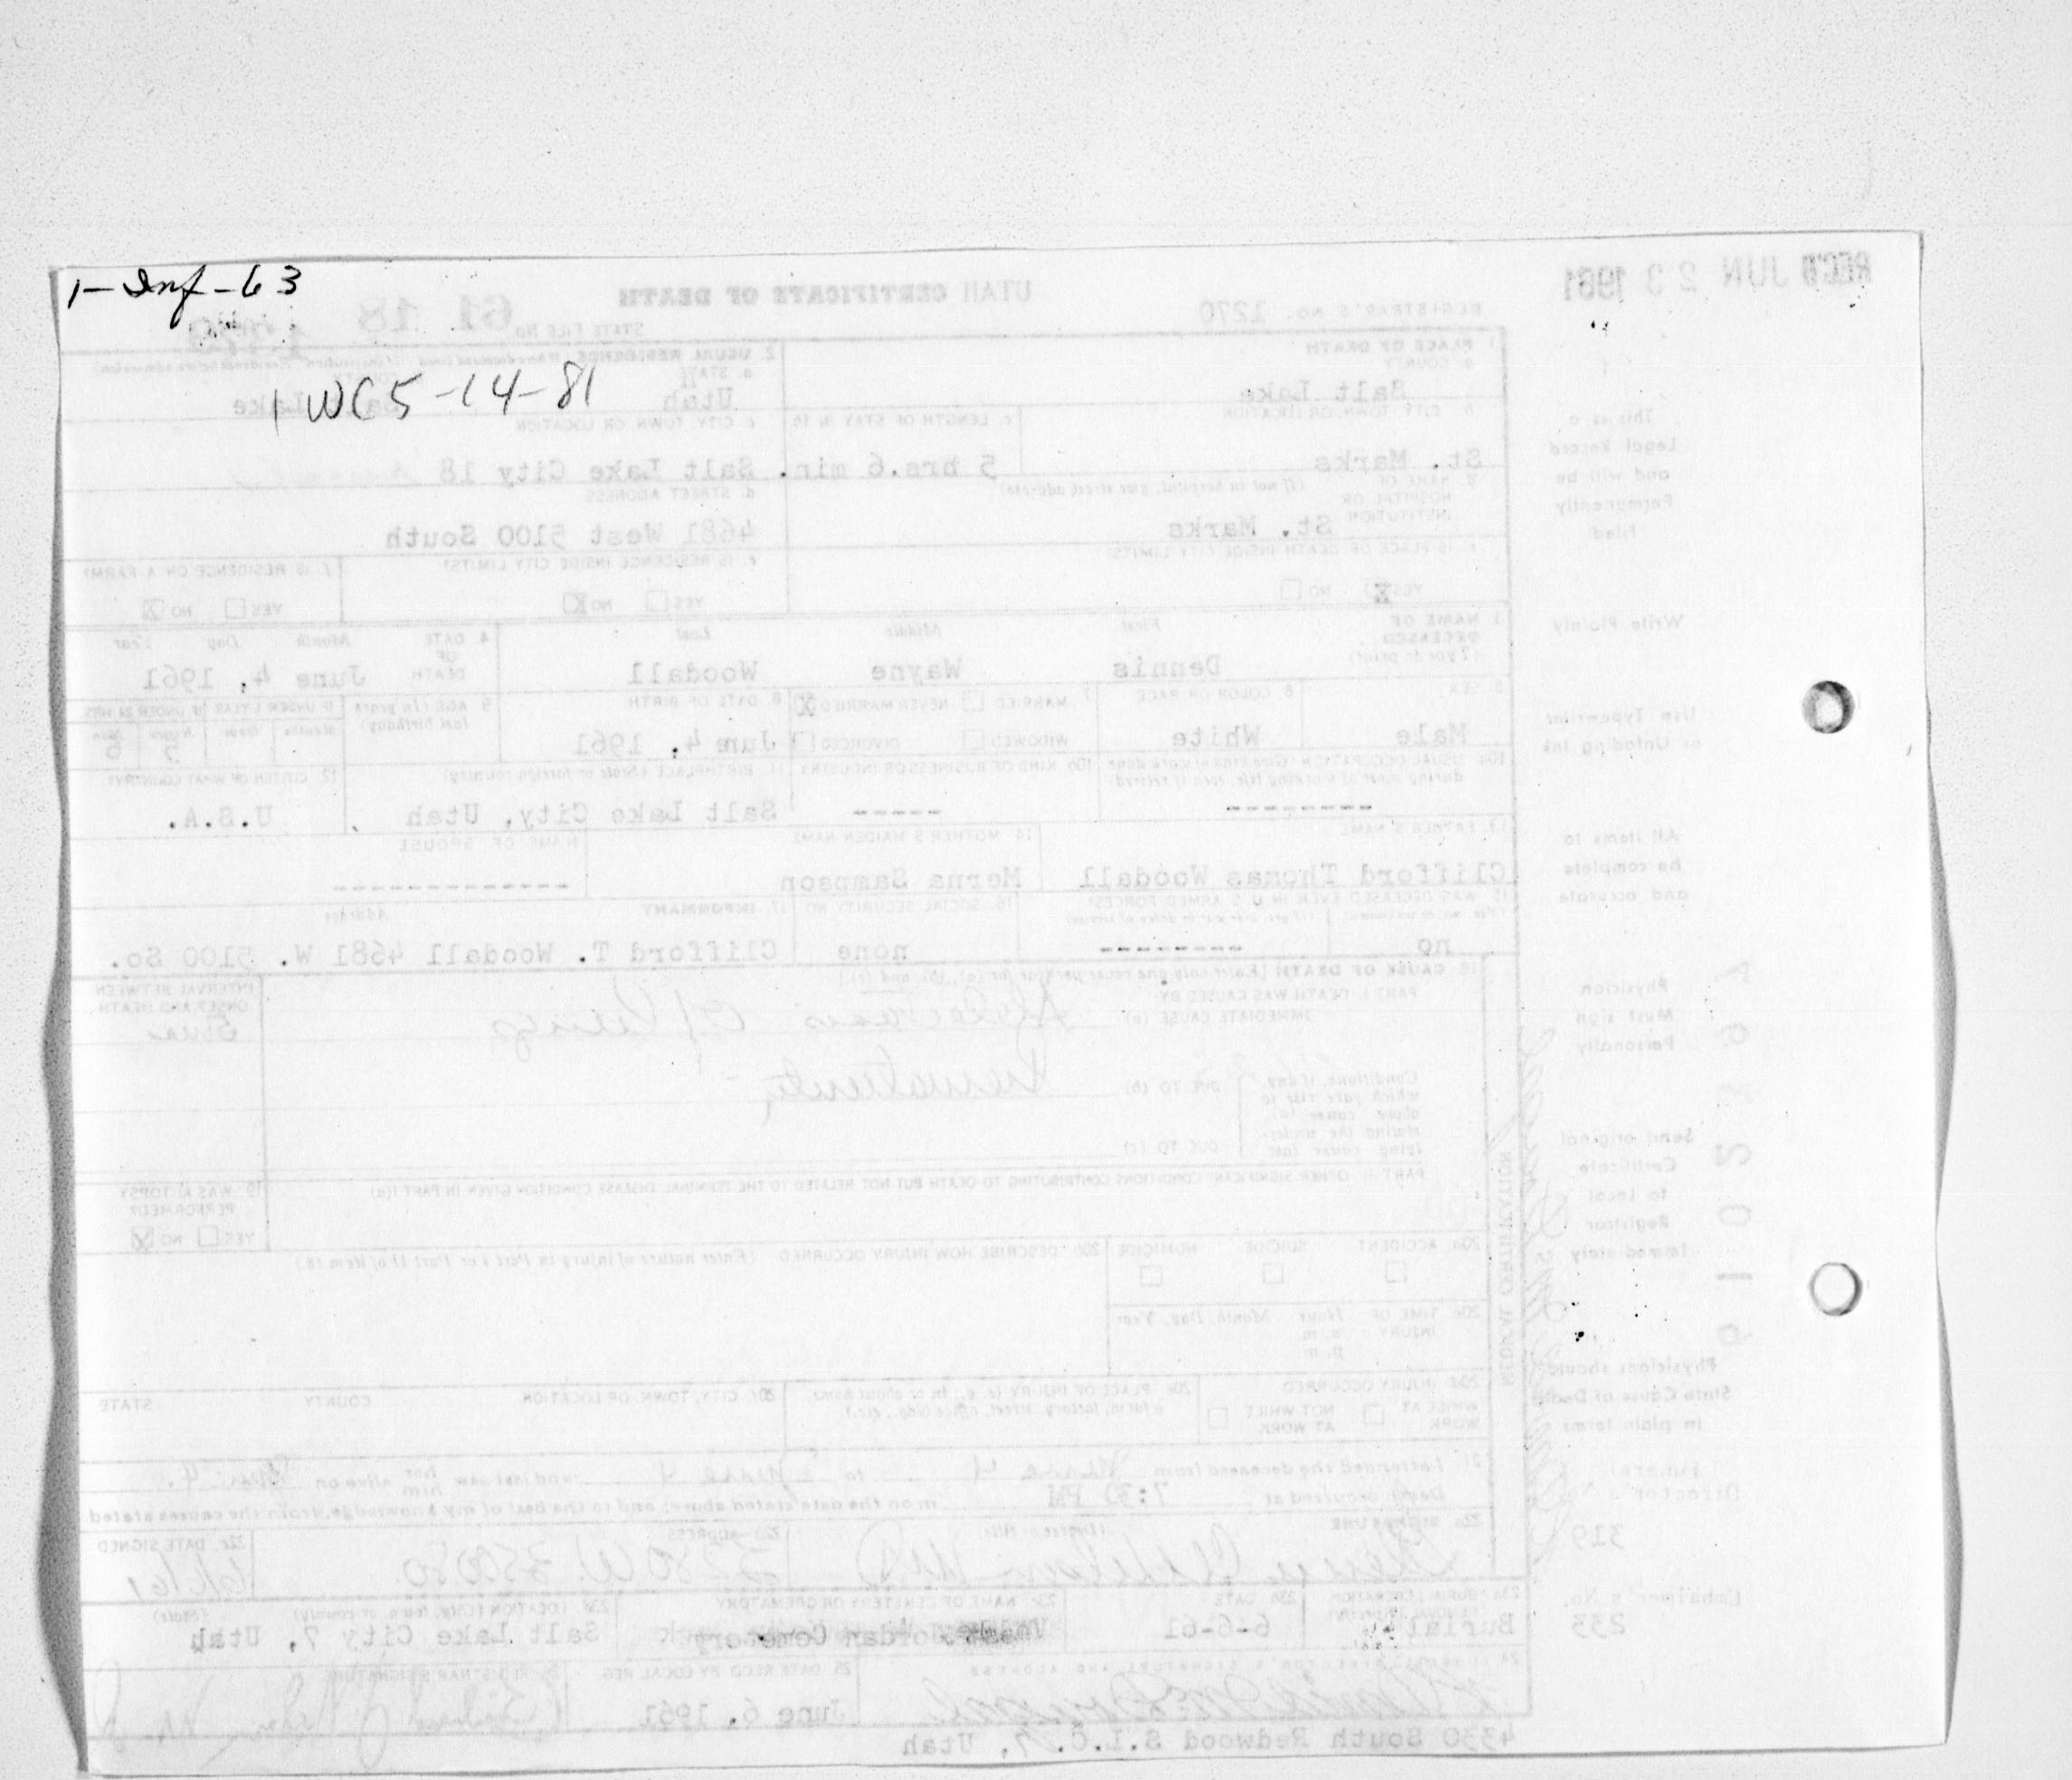 1-Inf-63
1 WC 5-14-81
REC'D JUN 23 1961
REGISTRAR'S NO. 1270
UTAH CERTIFICATE OF DEATH
STATE FILE No. 61 18
1. PLACE OF DEATH
a. COUNTY
Salt Lake
2. USUAL RESIDENCE
a. STATE
Utah
Salt Lake
b. CITY, TOWN, OR LOCATION
St. Marks
c. LENGTH OF STAY IN 1b
5 hrs.6 min.
c. CITY, TOWN, OR LOCATION
Salt Lake City 18
NAME OF HOSPITAL OR INSTITUTION
(If not in hospital, give street address)
St. Marks
d. STREET ADDRESS
4681 West 5100 South
IS PLACE OF DEATH INSIDE CITY LIMITS?
YES X NO
e. IS RESIDENCE INSIDE CITY LIMITS?
YES NO X
f. IS RESIDENCE ON A FARM?
YES NO X
3. NAME OF DECEASED (Type or print)
First Middle Last
Dennis Wayne Woodall
4. DATE OF DEATH Month Day Year
June 4, 1961
5. SEX
Male
6. COLOR OR RACE
White
7. MARRIED NEVER MARRIED X
WIDOWED DIVORCED
8. DATE OF BIRTH
June 4, 1961
9. AGE (In years last birthday)
IF UNDER 1 YEAR IF UNDER 24 HRS
Months Days Hours Min
5 6
10a. USUAL OCCUPATION (Give kind of work done during most of working life, even if retired)
--------
10b. KIND OF BUSINESS OR INDUSTRY
-----
11. BIRTHPLACE (State or foreign country)
Salt Lake City, Utah
12. CITIZEN OF WHAT COUNTRY?
U.S.A.
13. FATHER'S NAME
Clifford Thomas Woodall
14. MOTHER'S MAIDEN NAME
Merna Sampson
NAME OF SPOUSE
-------------
15. WAS DECEASED EVER IN U.S. ARMED FORCES?
no
---------
16. SOCIAL SECURITY NO.
none
17. INFORMANT Address
Clifford T. Woodall 4681 W. 5100 So.
18. CAUSE OF DEATH [Enter only one cause per line for (a), (b), and (c).]
PART I. DEATH WAS CAUSED BY:
IMMEDIATE CAUSE (a) Of Lungs
INTERVAL BETWEEN ONSET AND DEATH
Conditions, if any, which gave rise to above cause (a), stating the underlying cause last.
DUE TO (b) Prematurity
DUE TO (c)
PART II. OTHER SIGNIFICANT CONDITIONS CONTRIBUTING TO DEATH BUT NOT RELATED TO THE TERMINAL DISEASE CONDITION GIVEN IN PART I(a)
19. WAS AUTOPSY PERFORMED?
YES NO X
20a. ACCIDENT SUICIDE HOMICIDE
20b. DESCRIBE HOW INJURY OCCURRED (Enter nature of injury in Part I or Part II of item 18.)
20c. TIME OF INJURY Hour Month, Day, Year
a.m.
p.m.
20d. INJURY OCCURRED
WHILE AT WORK NOT WHILE AT WORK
20e. PLACE OF INJURY (e.g., in or about home, farm, factory, street, office bldg., etc.)
20f. CITY, TOWN, OR LOCATION COUNTY STATE
21. I attended the deceased from June 4 to June 4 and last saw her him alive on June 4.
Death occurred at 7:30 PM m on the date stated above; and to the best of my knowledge, from the causes stated.
22a. SIGNATURE (Degree or title)
22b. ADDRESS
22c. DATE SIGNED
6/6/61
23a. BURIAL, CREMATION, REMOVAL (Specify)
Burial
23b. DATE
6-6-61
23c. NAME OF CEMETERY OR CREMATORY
Jordan Cemetery
23d. LOCATION (City, town, or county) (State)
Salt Lake City 7, Utah
24. FUNERAL DIRECTOR'S SIGNATURE AND ADDRESS
4330 South Redwood S.L.C. 7, Utah
25. DATE REC'D BY LOCAL REG.
June 6, 1961
26. REGISTRAR'S SIGNATURE
MEDICAL CERTIFICATION
This is a
Legal Record
and will be
Permanently
Filed
Write Plainly
Use Typewriter
or Unfading Ink
All items to
be complete
and accurate
Physician
Must sign
Personally
Send original
Certificate
to Local
Registrar
Immediately
Physicians should
State Cause of Death
in plain terms
Funeral
Director's No.
319
Embalmer's No.
233